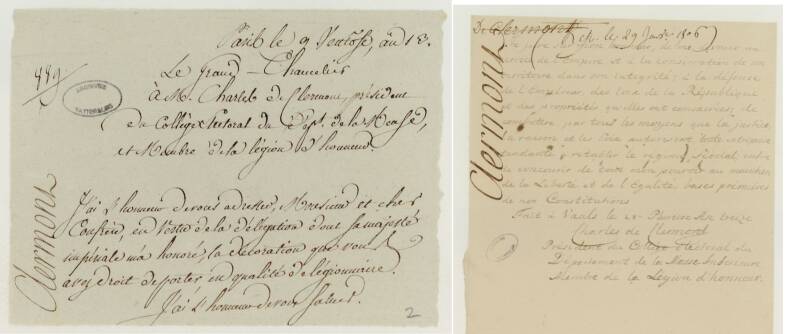 Paris le 9 Ventose, an 13.
449
Le Grand-Chancelier
ARCHIVES NATIONALES
à M. Charles de Clermont, président
du Collège électoral du Dépt. de la Meuse,
et Membre de la légion d'honneur.
Clermont
J'ai l'honneur de vous adresser, Monsieur et cher
Confrère, en vertu de la délégation dont sa majesté
impériale m'a honoré, la décoration que vous
avez droit de porter en qualité de légionnaire.
J'ai l'honneur de vous saluer.
2
De Clermont
le 29 Janv. 1806
Clermont
Je jure sur mon honneur, de me dévouer au
service de l'Empire et à la conservation de son
territoire dans son intégrité; à la défense
de l'Empereur, des loix de la République
et des propriétés qu'elles ont consacrées; de
combattre par tous les moyens que la justice
la raison et les loix autorisent toute entreprise
tendante à rétablir le régime féodal, enfin
de concourir de tout mon pouvoir au maintien
de la Liberté et de l'Égalité, bases premières
de nos Constitutions
Fait à Vaals le Pluviose An treize
Charles de Clermont
Président du College Electoral du
Département de la Meuse Inferieure
Membre de la Legion d'honneur.